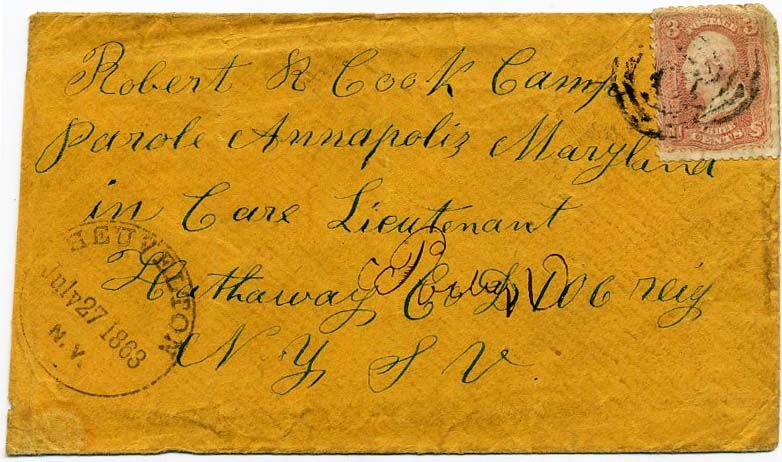 Robert R Cook Camp
Parole Annapolis Maryland
in Care Lieutenant
Hathaway Co D 106 reig
N Y S V
HEUVELTON
July 27 1863
N.Y.
3 POSTAGE 3
CENTS